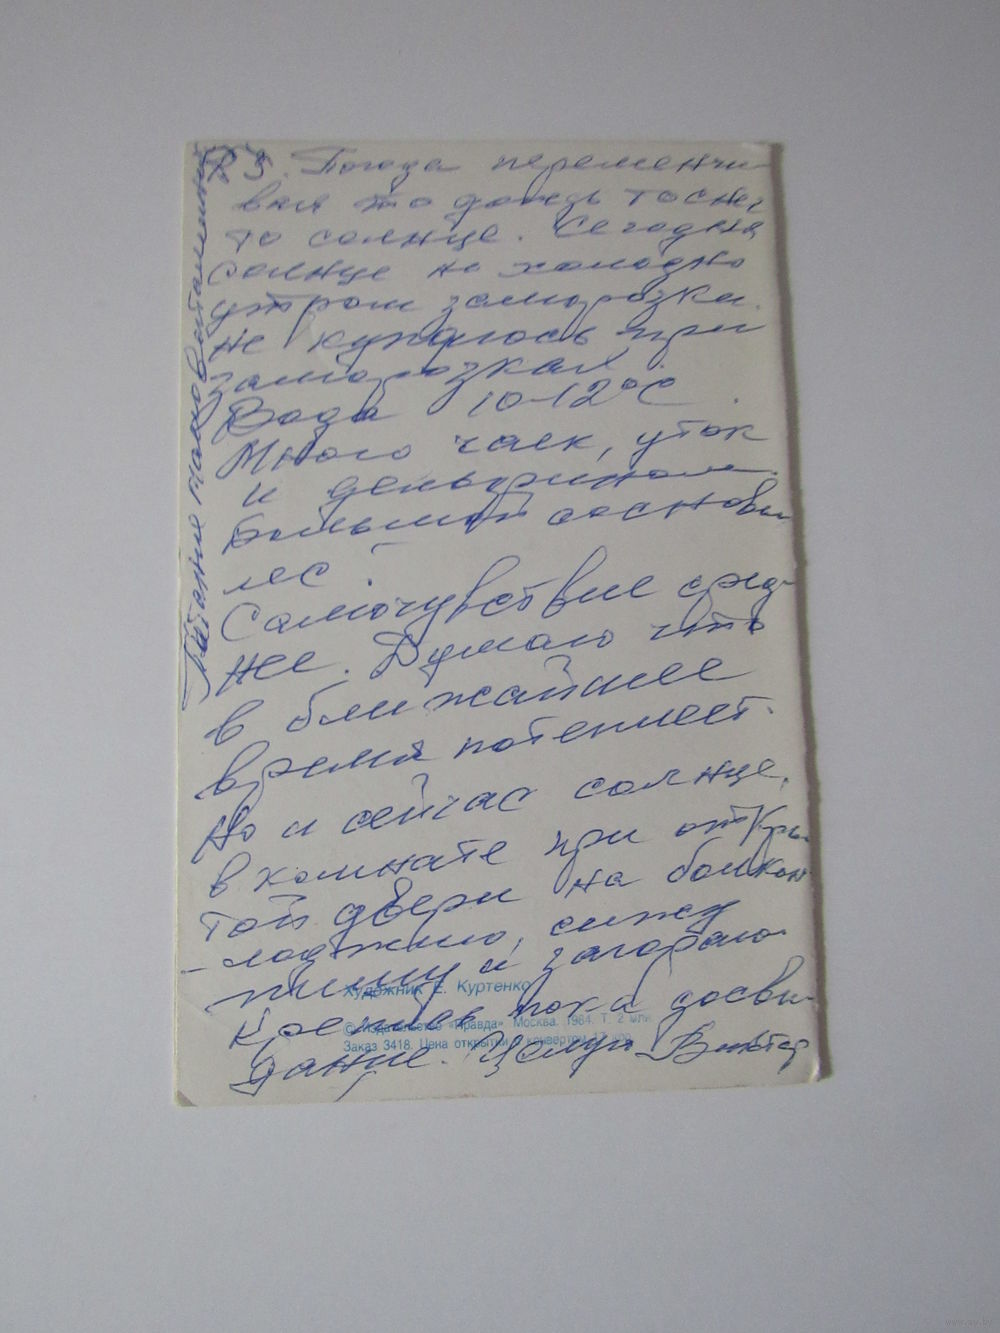 P.S. Погода переменчи-
вая то дождь то снег
то солнце. Сегодня
солнце но холодно
утром заморозки.
Не купаюсь при
заморозках.
Вода 10-12°C.
Много чаек, уток
и
Большой сосновый
лес.
Самочувствие сред-
нее. Думаю что
в ближайшее
время потеплеет.
Но и сейчас солнце,
в комнате при откры-
той двери на балкон
сижу
пишу и загораю.
пока досви-
дание. Целую Виктор
Питание маловитаминно
Художник Е. Куртенко
© Издательство «Правда». Москва. 1984. Т. 2 млн.
Заказ 3418. Цена открытки с конвертом